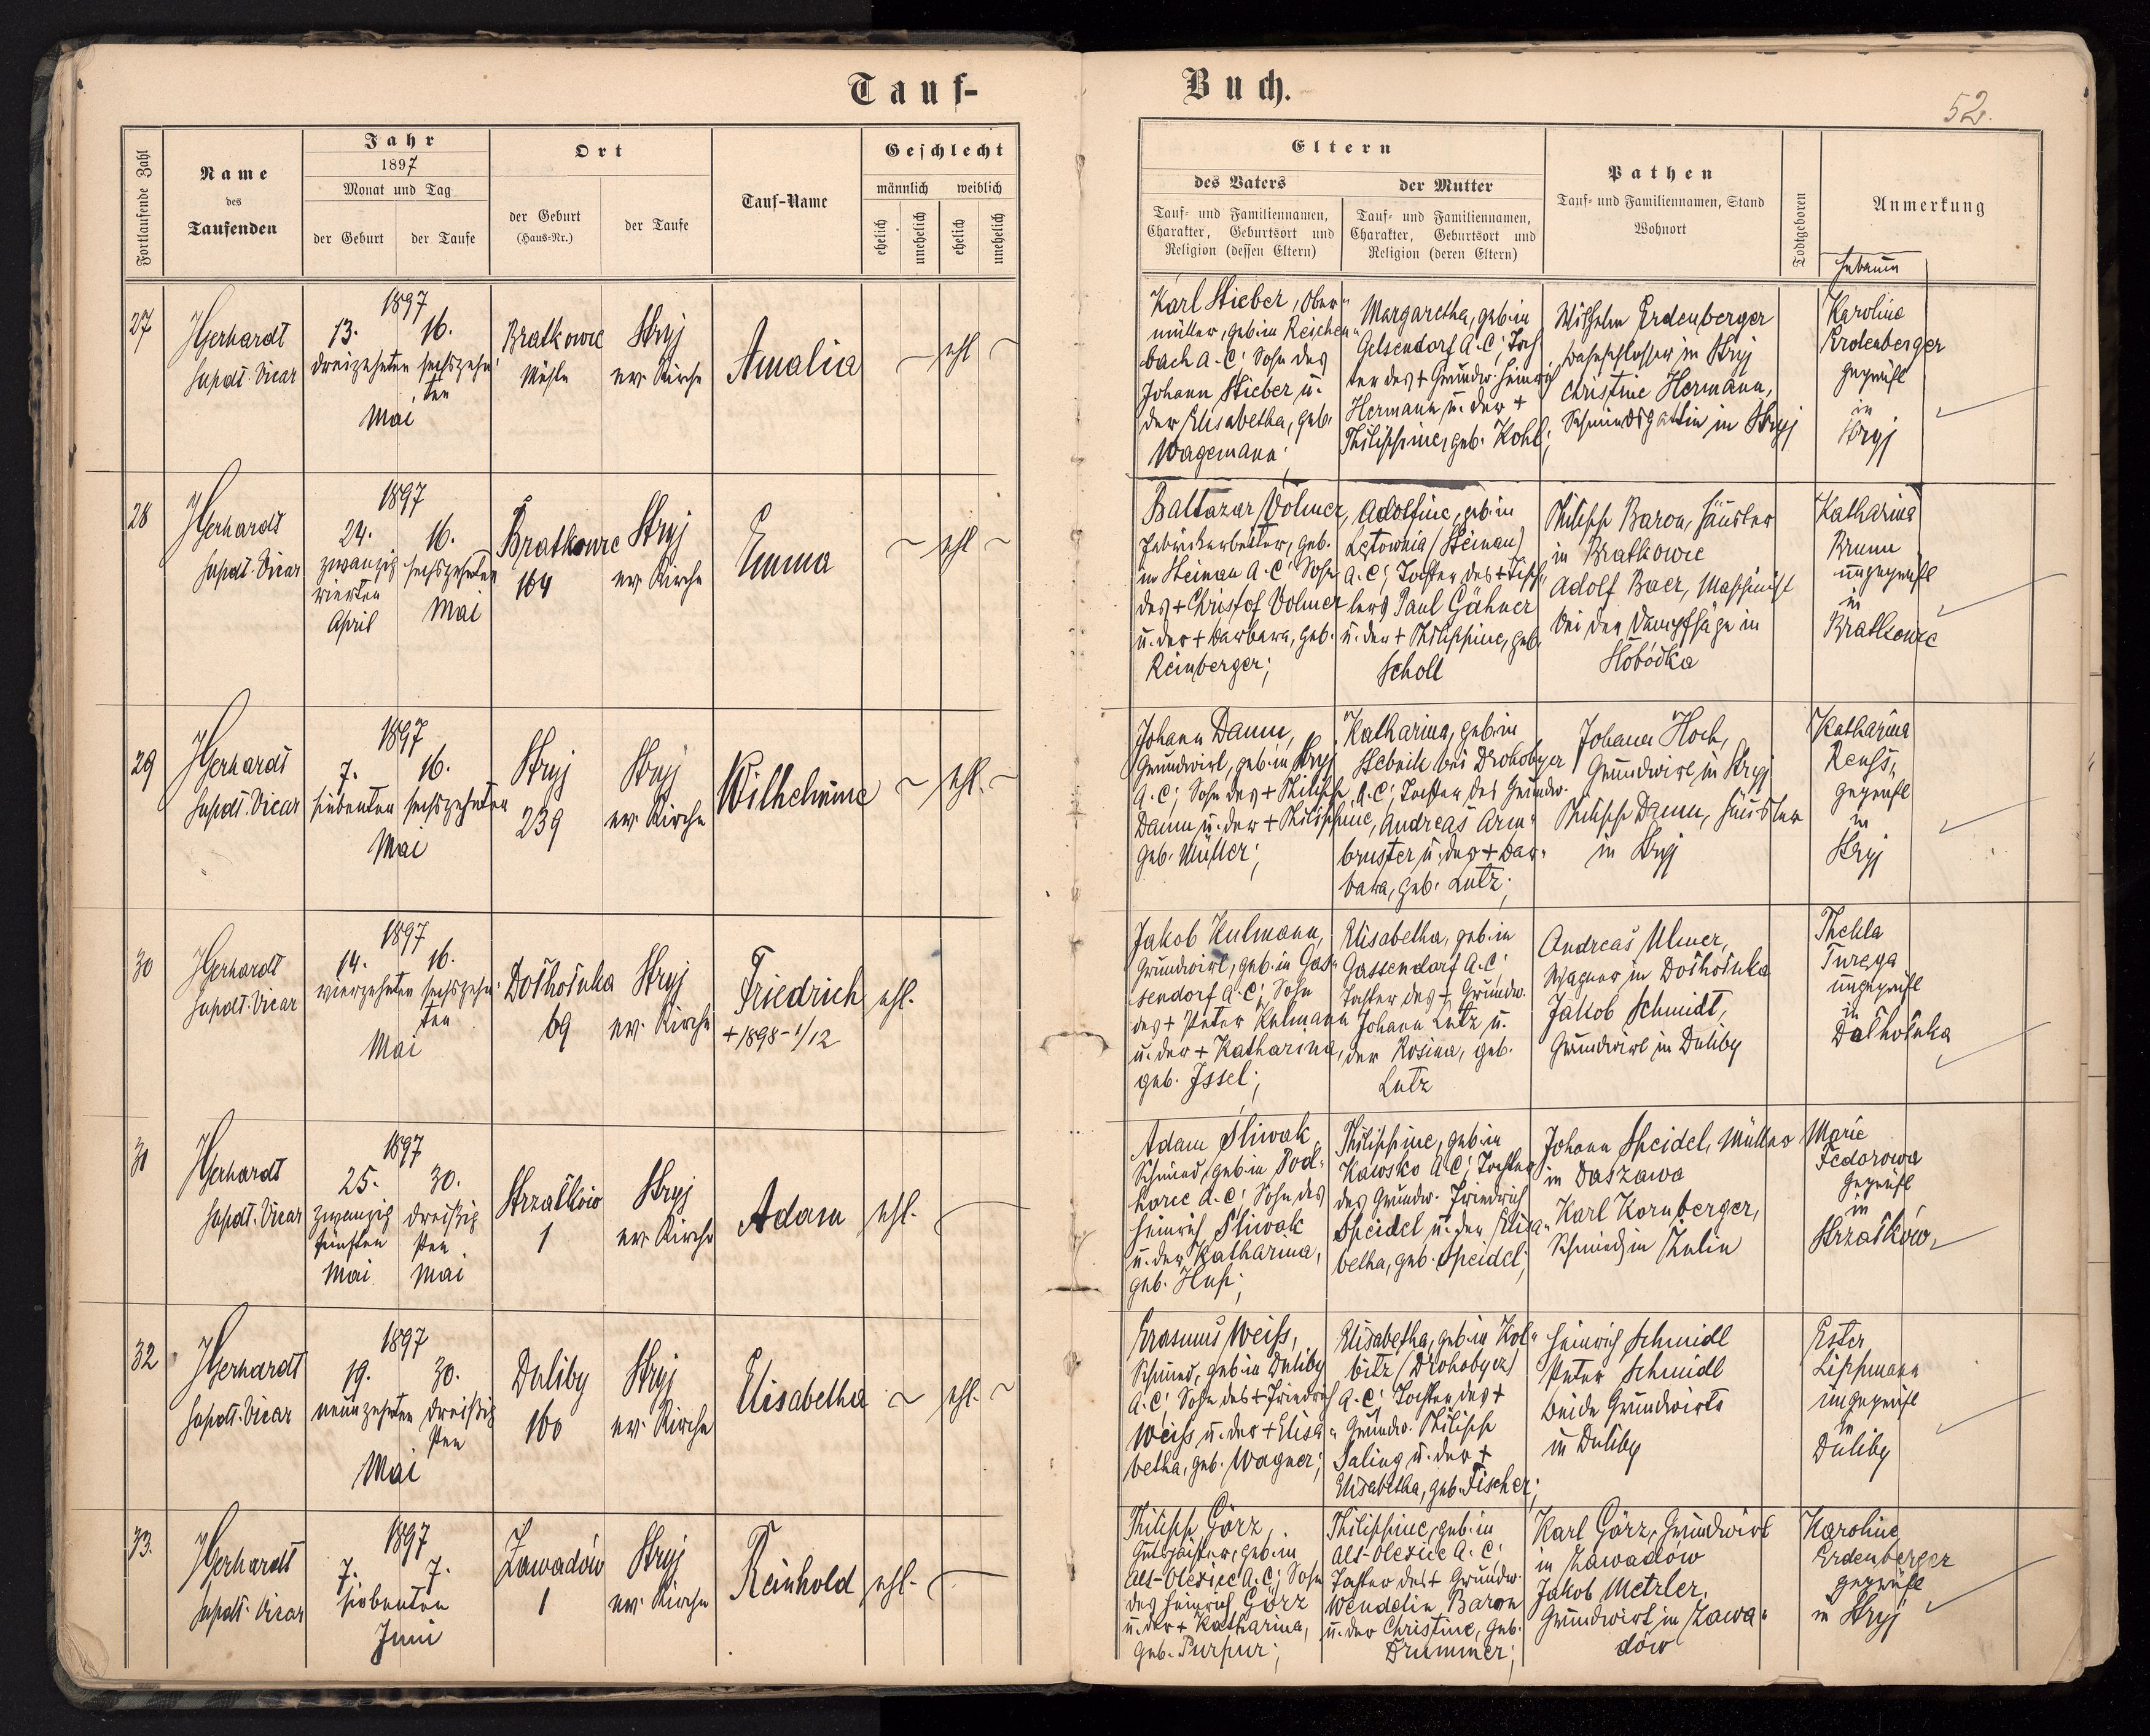 Tauf-
Buch.
52.
Fortlaufende Zahl
Name
des
Taufenden
Jahr
1897
Monat und Tag
der Geburt
der Taufe
Ort
der Geburt
(Haus-Nr.)
der Taufe
Tauf-Name
Geschlecht
männlich
weiblich
ehelich
unehelich
ehelich
unehelich
Eltern
des Vaters
Tauf- und Familiennamen,
Charakter, Geburtsort und
Religion (dessen Eltern)
der Mutter
Tauf- und Familiennamen,
Charakter, Geburtsort und
Religion (deren Eltern)
Pathen
Tauf- und Familiennamen, Stand
Wohnort
Todtgeboren
Anmerkung
Hebamm
27
Gerhardt
Supdt. Vicar
1897
13.
16.
dreizehnten
sechszehn-
ten
Mai
Bratkowce
Mühle
Stryj
ev. Kirche
Amalia
ehl
Karl Stieber, Ober-
müller, geb. in Reichen-
bach A. C.; Sohn des
Johann Stieber u.
der Elisabetha, geb.
Wagemann;
Margaretha, geb. in
Gelsendorf A. C; Toch-
ter des + Grundw. Heinrich
Hermann u. der +
Philippine, geb. Kohl;
Wilhelm Erdenberger
Bahnschlosser in Stryj
Christine Hermann,
Schmiedsgattin in Stryj
Karoline
Erdenberger
geprüft
in
Stryj
28
Gerhardt
Supdt. Vicar
1897
24.
16.
zwanzig
vierten
April
sechszehnten
Mai
Bratkowce
164
Stryj
ev. Kirche
Emma
ehl
Baltazar Volmer,
Fabriksarbeiter, geb.
in Steinau A. C; Sohn
des + Christof Volmer
u. der + Barbara, geb.
Reinberger;
Adolfine, geb. in
Łętownia (Steinau)
A. C; Tochter des + Tisch-
lers Paul Gähner
u. der + Philippine, geb.
Scholl
Philipp Baron, Häusler
in Bratkowce
Adolf Baer, Maschinist
bei der Dampfsäge in
Słobódka
Katharina
Brunn
ungeprüft
in
Bratkowce
29
Gerhardt
Supdt. Vicar
1897
7.
16.
siebenten
sechszehnten
Mai
Stryj
239
Stryj
ev. Kirche
Wilhelmine
ehl.
Johann Damm,
Grundwirt, geb. in Stryj
A. C; Sohn des + Philipp
Damm u. der + Philippine,
geb. Müller;
Katharina, geb. in
Stebnik bei Drohobycz
A. C; Tochter des Grundw.
Andreas Arm-
bruster u. der + Bar-
bara, geb. Lutz;
Johann Hoch,
Grundwirt in Stryj
Philipp Damm, Häusler
in Stryj
Katharina
Reuss,
geprüft
in
Stryj
30
Gerhardt
Supdt. Vicar
1897
14.
16.
vierzehnten
sechszehn-
ten
Mai
Dołhołuka
69
Stryj
ev. Kirche
Friedrich
+ 1898 - 1/12
ehl.
Jakob Kulmann,
Grundwirt, geb. in Gas-
sendorf A. C; Sohn
des + Peter Kulmann
u. der + Katharina,
geb. Issel;
Elisabetha, geb. in
Gassendorf A. C;
Tochter des + Grundw.
Johann Lutz u.
der Rosina, geb.
Lutz
Andreas Ulmer,
Wagner in Dołhołuka
Jakob Schmidt,
Grundwirt in Duliby
Thekla
Turezga
ungeprüft
in
Dołhołuka
31
Gerhardt
Supdt. Vicar
1897
25.
30.
zwanzig
fünften
Mai
dreißig
sten
Mai
Strzałków
1
Stryj
ev. Kirche
Adam
ehl.
Adam Śliwak
Schmied, geb. in Pod-
horce A. C; Sohn des
Heinrich Śliwak
u. der Katharina,
geb. Huf;
Philippine, geb. in
Kawsko A. C; Tochter
des Grundw. Friedrich
Speidel u. der Elisa-
betha, geb. Speidel;
Johann Speidel, Müller
in Daszawa
Karl Kornberger,
Schmied in Zulin
Marie
Fedorowa
geprüft
in
Strzałków
32
Gerhardt
Supdt. Vicar
1897
19.
30.
neunzehnten
dreißig
sten
Mai
Duliby
160
Stryj
ev. Kirche
Elisabetha
ehl.
Erasmus Weiss,
Schmied, geb. in Duliby
A. C; Sohn des + Friedrich
Weiss u. der + Elisa-
betha, geb. Wagner;
Elisabetha, geb. in Kol-
bitz (Drohobycz)
A. C; Tochter des +
Grundw. Philipp
Saling u. der +
Elisabetha, geb. Fischer;
Heinrich Schmidt
Peter Schmidt
beide Grundwirte
in Duliby
Ester
Lippmann
ungeprüft
in
Duliby
33.
Gerhardt
Supdt. Vicar
1897
7.
7.
siebenten
Juni
Zawadów
1
Stryj
ev. Kirche
Reinhold
ehl.
Philipp Görz,
Gutspächter, geb. in
Alt-Olexice A. C; Sohn
des Heinrich Görz
u. der + Katharina,
geb. Purpur;
Philippine, geb. in
Alt-Olexice A. C.
Tochter des + Grundw.
Wendelin Baron
u. der Christine, geb.
Drummer;
Karl Görz, Grundwirt
in Zawadów
Jakob Metzler,
Grundwirt in Zawa-
dów
Karoline
Erdenberger
geprüft
in Stryj